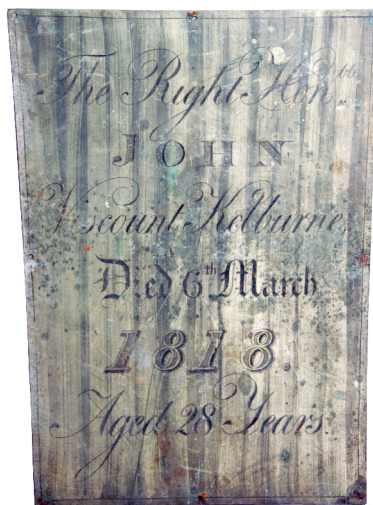 The Right Hon.ble
JOHN
Viscount Kelburne,
Died 6th March
1818.
Aged 28 Years